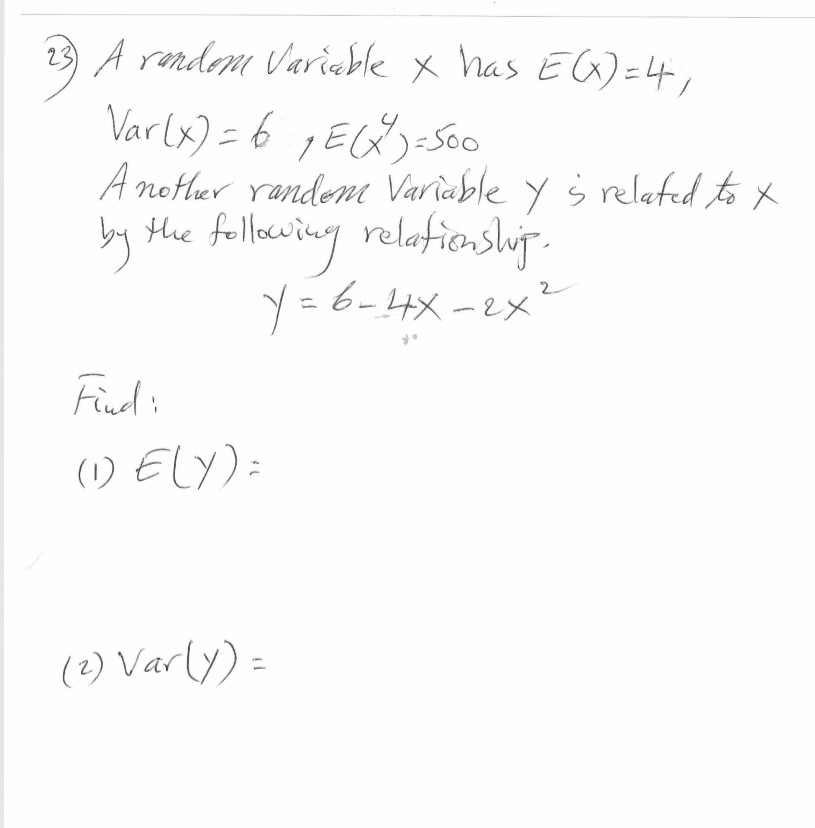 23) A random Variable x has E(x)=4,
Var(x) = 6 , E(x⁴)=500
Another random Variable y is related to x
by the following relationship.
y = 6 - 4x - 2x²
Find:
(1) E(y) =
(2) Var(y) =